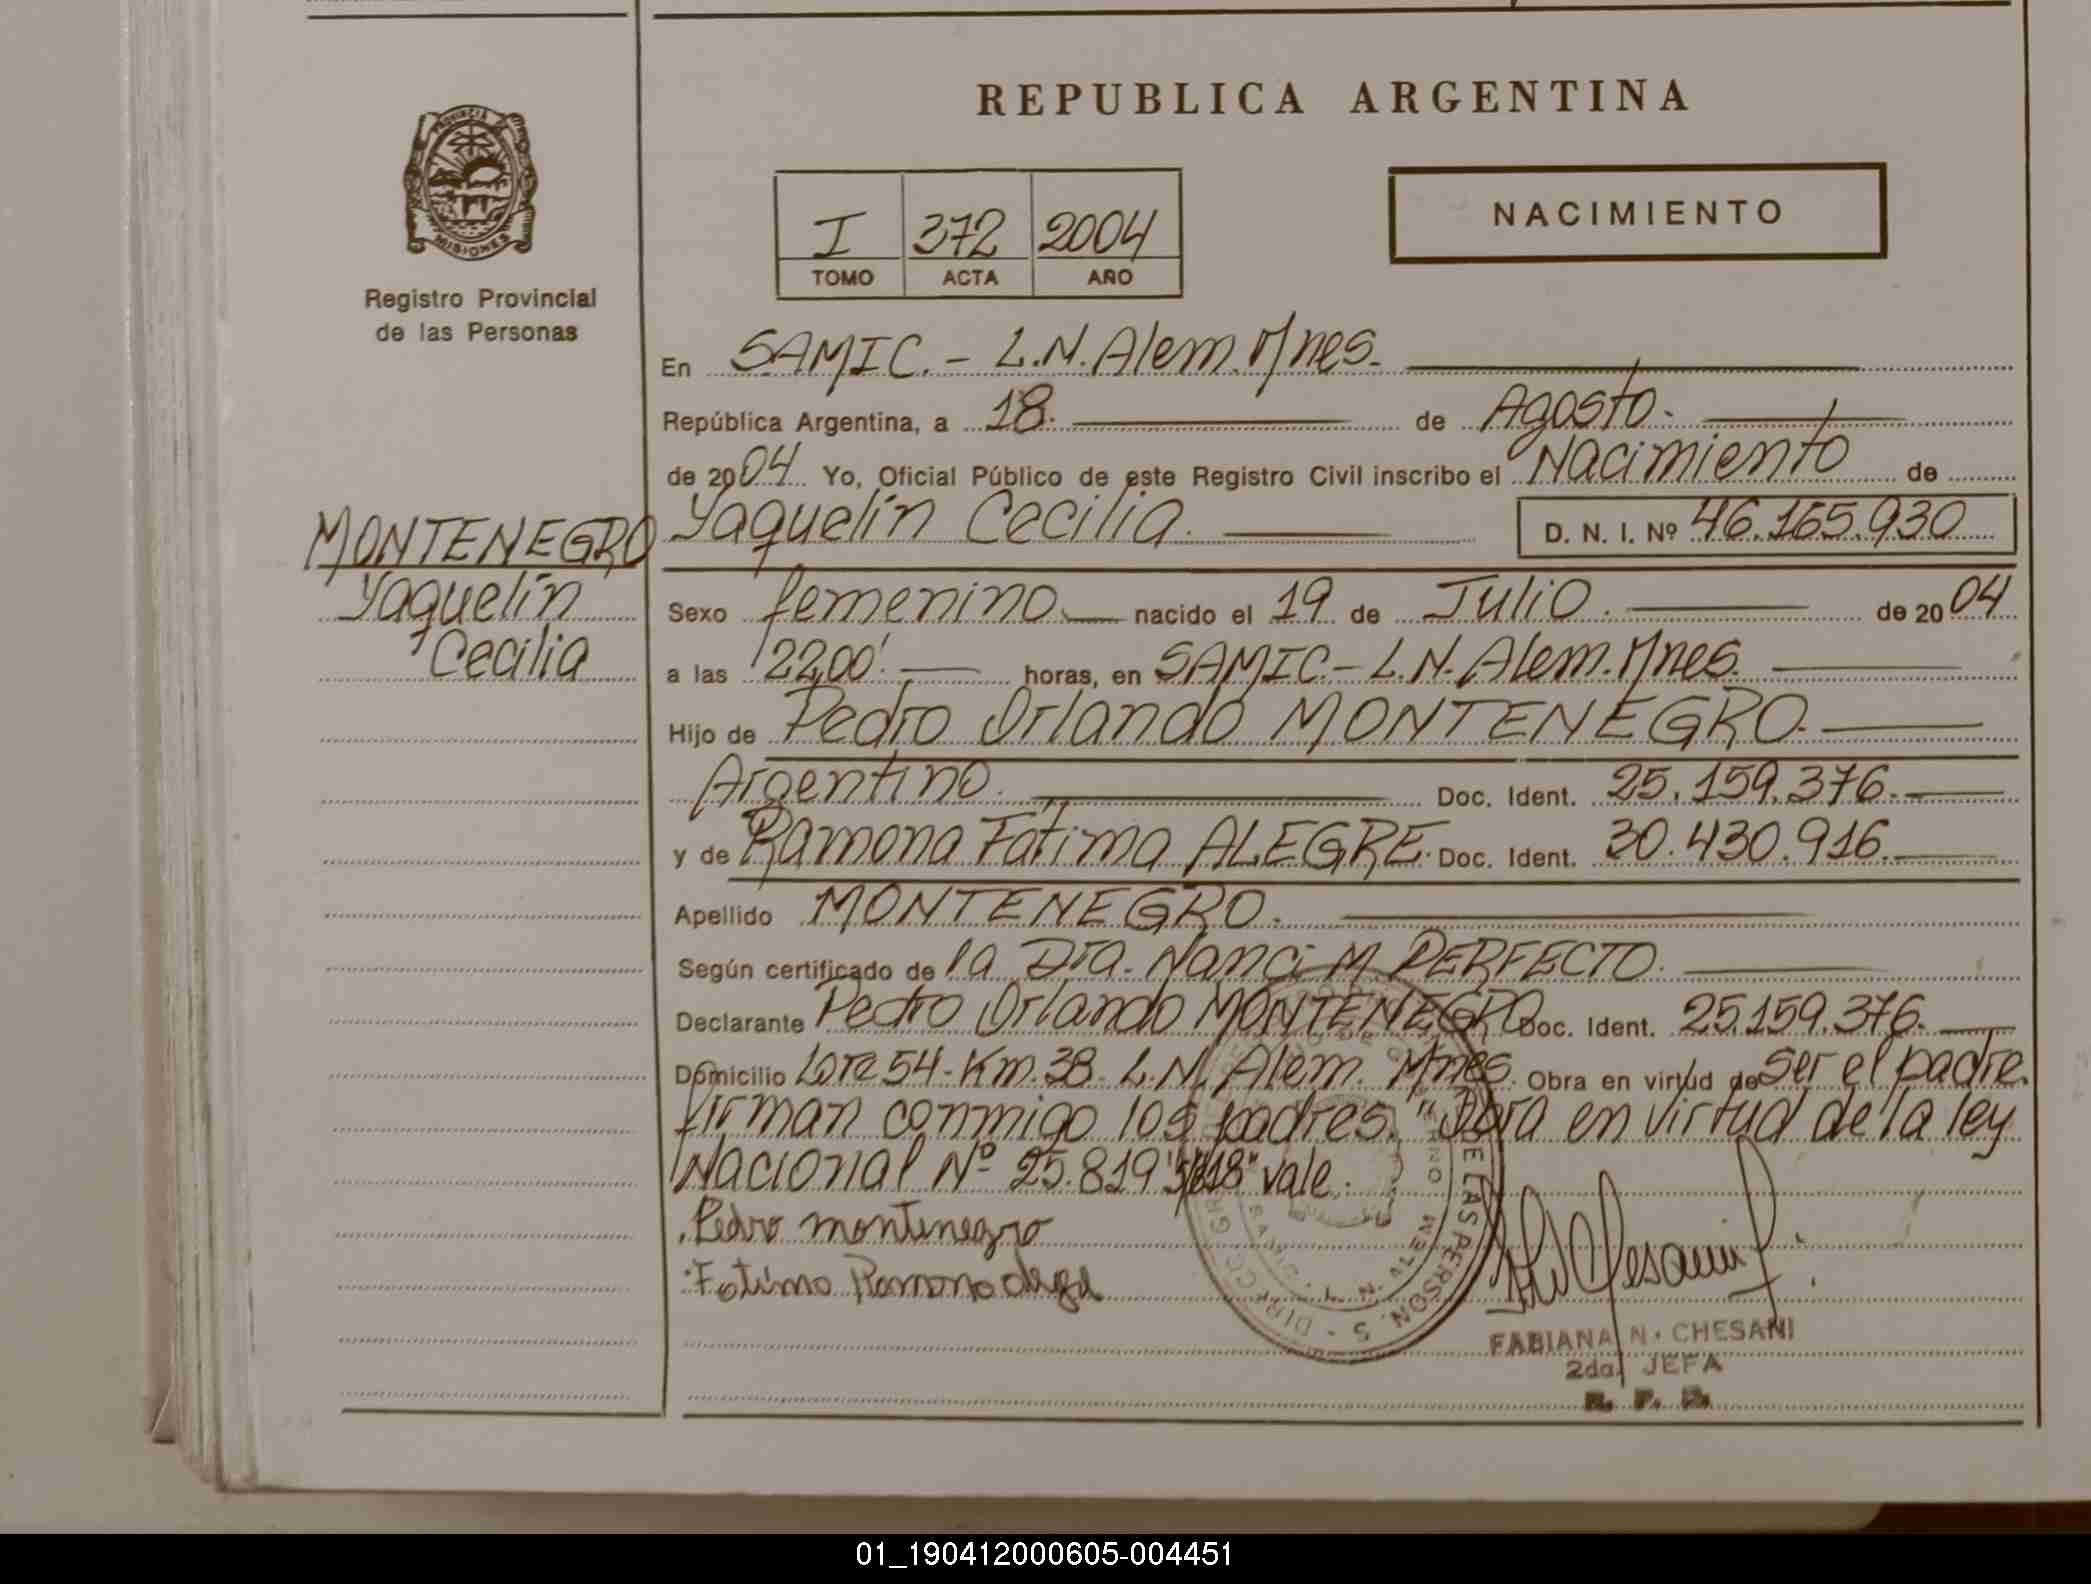 REPUBLICA ARGENTINA
PROVINCIA DE
MISIONES
Registro Provincial
de las Personas
I 372 2004
TOMO ACTA AÑO
NACIMIENTO
En SAMIC. - L.N. Alem. Mnes.
República Argentina, a 18. de Agosto.
de 2004 Yo, Oficial Público de este Registro Civil inscribo el Nacimiento de
Yaquelín Cecilia. D. N. I. Nº 46.165.930
MONTENEGRO
Yaquelín
Cecilia
Sexo femenino nacido el 19 de Julio. de 2004
a las 22,00'. horas, en SAMIC.- L.N. Alem. Mnes.
Hijo de Pedro Orlando MONTENEGRO.
Argentino. Doc. Ident. 25.159.376.
y de Ramona Fátima ALEGRE. Doc. Ident. 30.430.916.
Apellido MONTENEGRO.
Según certificado de la Dra. Nanci M. PERFECTO.
Declarante Pedro Orlando MONTENEGRO Doc. Ident. 25.159.376.
Domicilio Lote 54 - Km. 38 - L.N. Alem. Mnes. Obra en virtud de Ser el padre.
firman conmigo los padres. "Obra en virtud de la ley
Nacional Nº 25.819" "18" vale.
Pedro montenegro
Fatima Ramona
DE LAS PERSON. S
L. N. ALEM
FABIANA N. CHESANI
2da. JEFA
R. P. P.
01_190412000605-004451